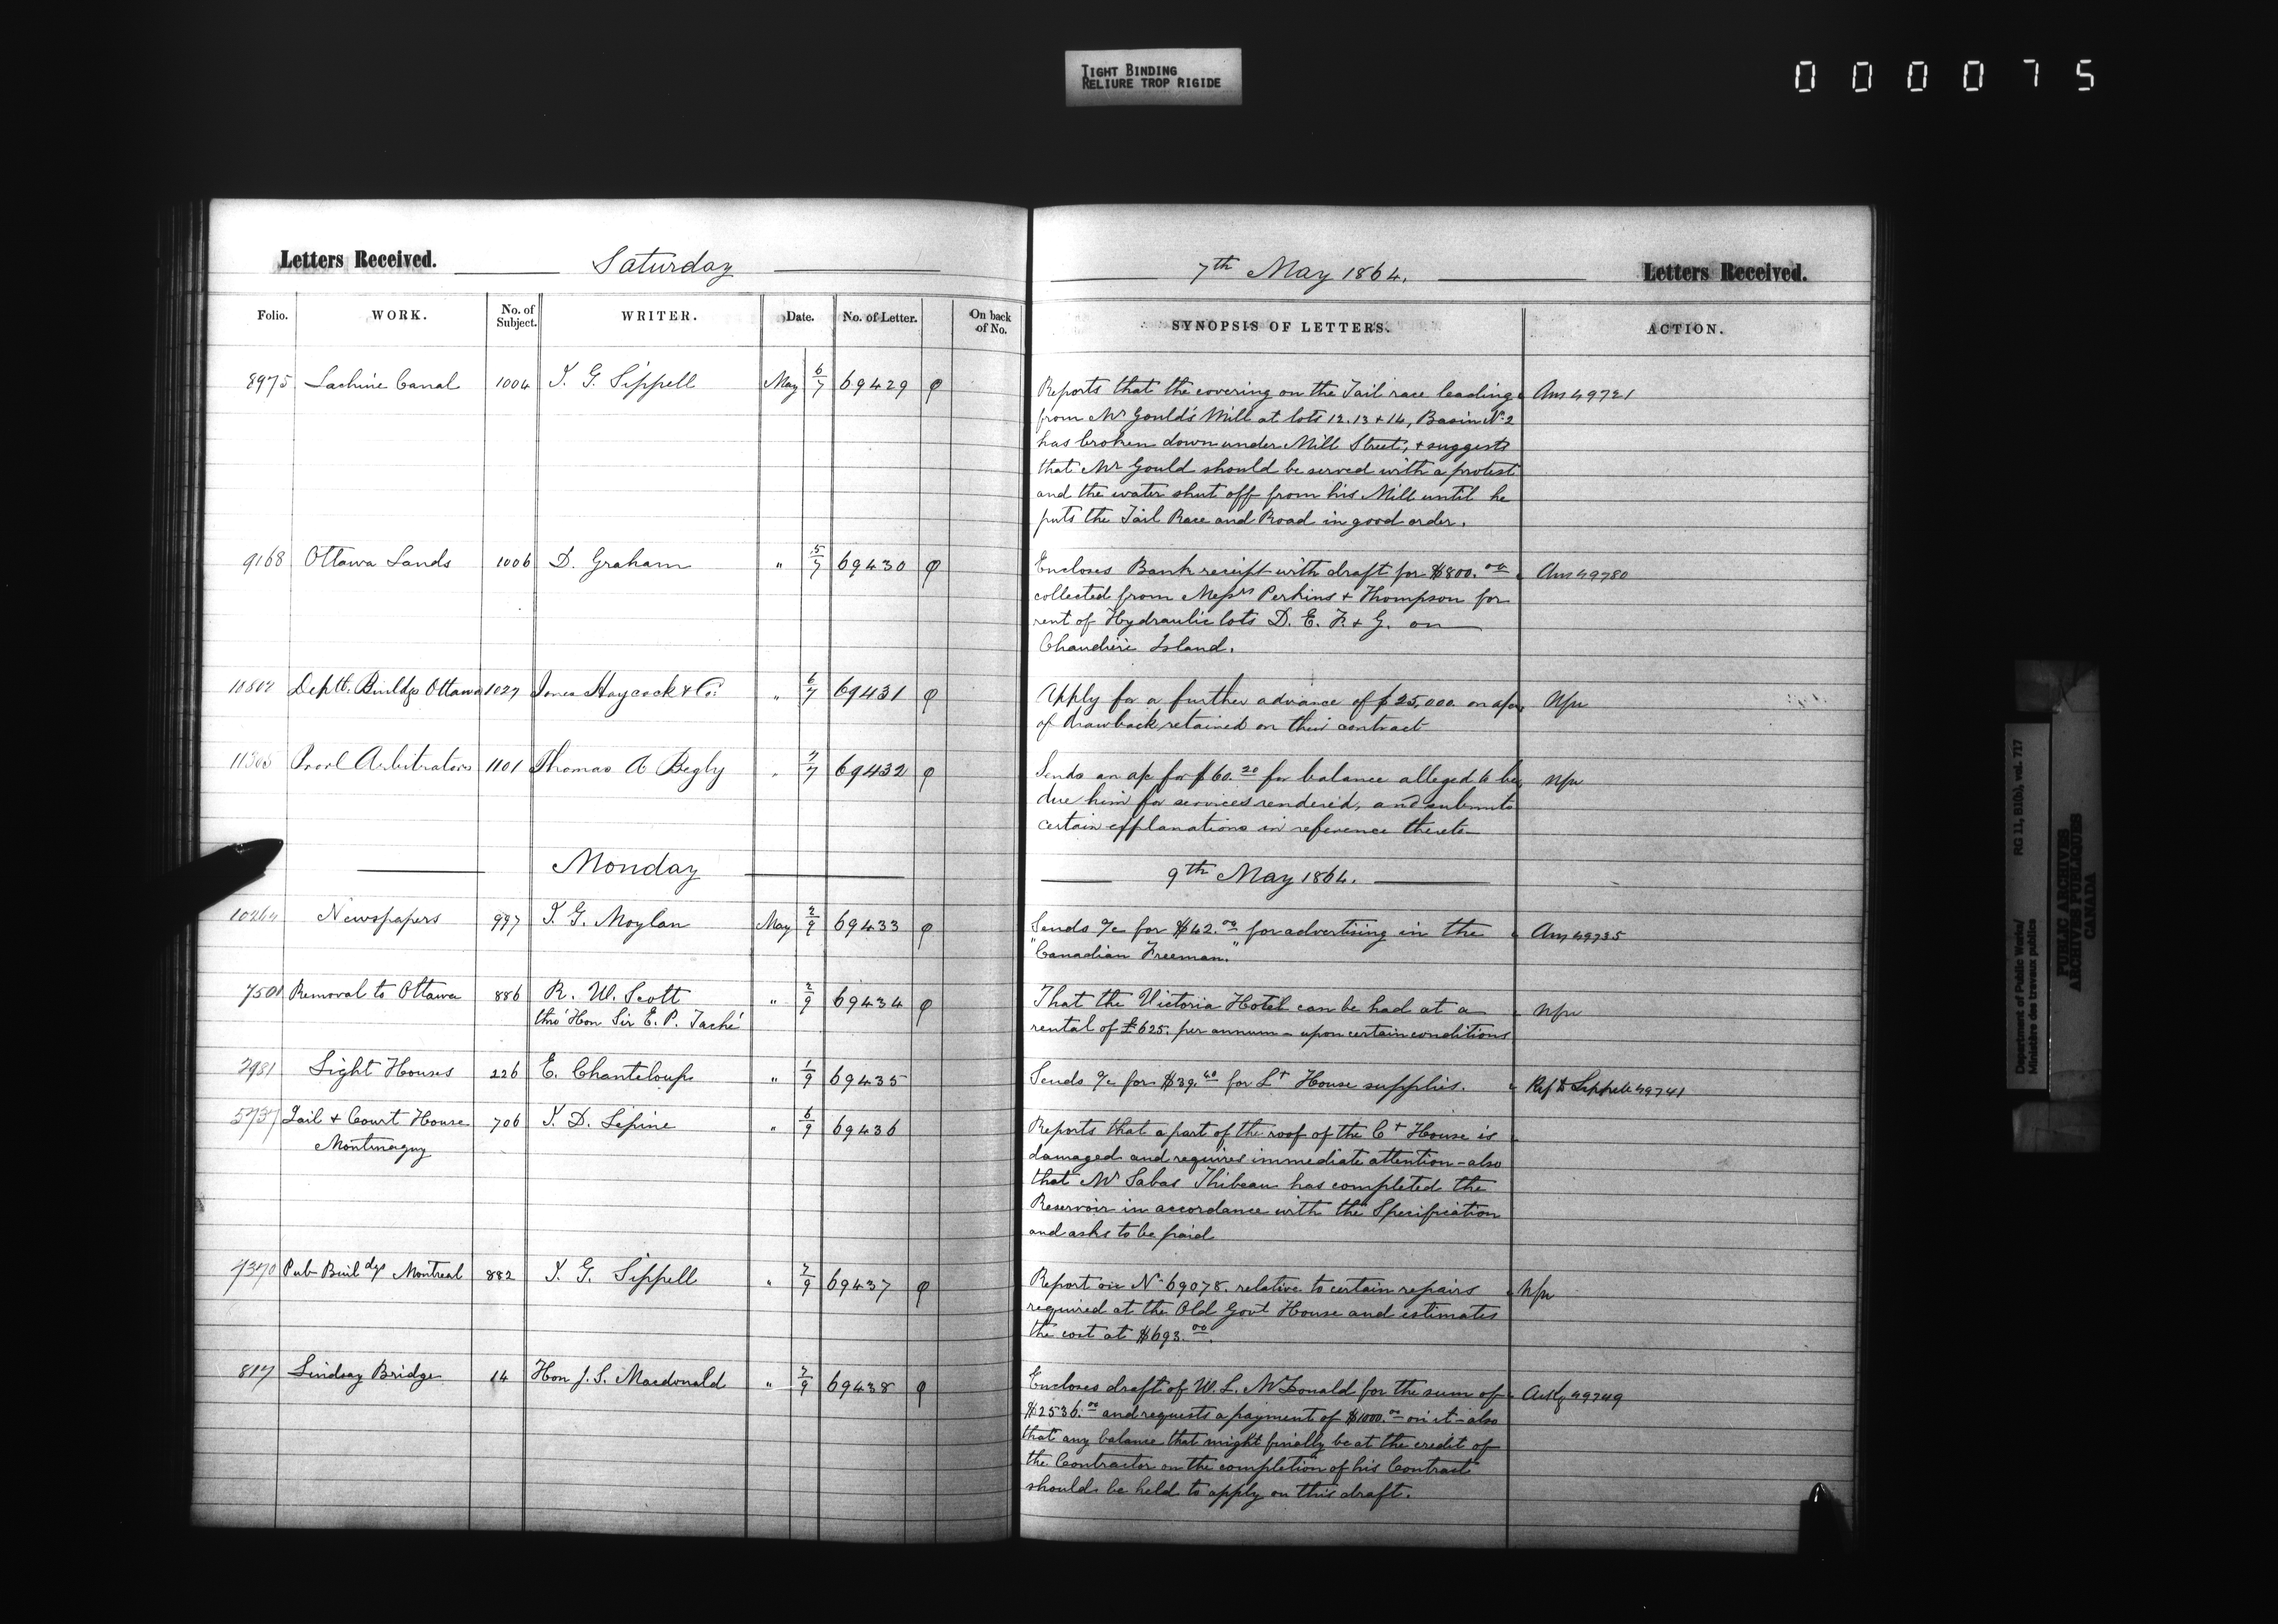 TIGHT BINDING
RELIURE TROP RIGIDE
000075
Letters Received. Saturday 7th May 1864. Letters Received.
Folio. WORK. No. of Subject. WRITER. Date. No. of Letter. On back of No. SYNOPSIS OF LETTERS. ACTION.
8975 Lachine Canal 1004 J. G. Sippell May 6/7 69429 Reports that the covering on the Tail race leading Ans 49721
from Mr Gould's Mill at lots 12.13 + 14, Basin No 2
has broken down under Mill Street; + suggests
that Mr Gould should be served with a protest
and the water shut off from his Mill until he
puts the Tail Race and Road in good order.
9168 Ottawa Lands 1006 D. Graham " 5/7 69430 Encloses Bank receipt with draft for $800.00 Ans 49780
collected from Messrs Perkins + Thompson for
rent of Hydraulic lots D. E. F. + G. on
Chaudière Island.
Deptl. Buildgs Ottawa 1027 Jones Haycock & Co: " 6/7 69431 Apply for a further advance of $25,000 on a/c
of drawback retained on their contract
Provl Arbitrators 1101 Thomas A Begly " 7/7 69432 Sends an a/c for $60.20 for balance alleged to be
due him for services rendered, and submits
certain explanations in reference thereto
Monday 9th May 1864.
10264 Newspapers 997 J. G. Moylan May 2/9 69433 Sends a/c for $42.00 for advertising in the Ans 49735
"Canadian Freeman."
7501 Removal to Ottawa 886 R. W. Scott " 2/9 69434 That the Victoria Hotel can be had at a
thro' Hon Sir E. P. Taché rental of £625. per annum - upon certain conditions
2981 Light Houses 226 E. Chanteloup " 1/9 69435 Sends a/c for $39.40 for Lt House supplies. Ref to Sippell 49741
5737 Jail + Court House 706 J. D. Lepine " 6/9 69436 Reports that a part of the roof of the Ct House is
Montmagny damaged and requires immediate attention - also
that Mr Sabas Thibeau has completed the
Reservoir in accordance with the Specification
and asks to be paid
7370 Pub Buildgs Montreal 882 J. G. Sippell " 7/9 69437 Report on No 69078. relative to certain repairs
required at the Old Govt House and estimates
the cost at $693.00.
817 Lindsay Bridge 14 Hon J. S. Macdonald " 7/9 69438 Encloses draft of W. L. McDonald for the sum of Ackg 49749
$2536.00 and requests a payment of $1000.00 on it - also
that any balance that might finally be at the credit of
the Contractor on the completion of his Contract
should be held to apply on this draft.
Department of Public Works/
Ministère des travaux publics
RG 11, B1(b), vol. 717
PUBLIC ARCHIVES
ARCHIVES PUBLIQUES
CANADA